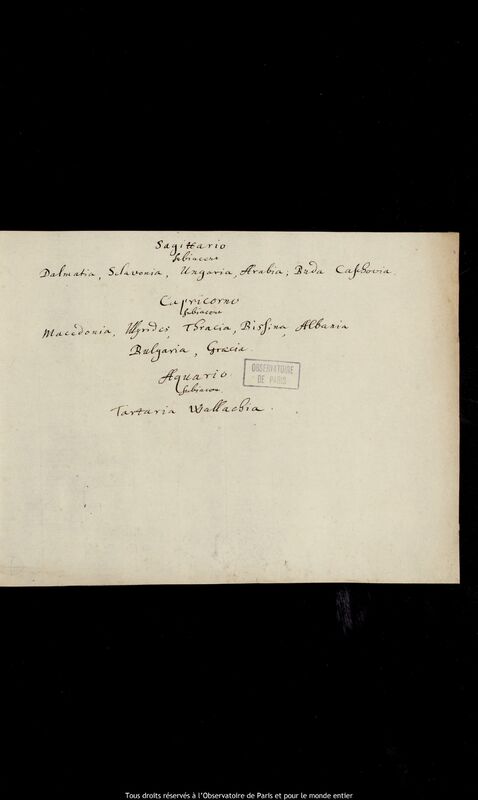 Sagittario
subiacent
Dalmatia, Sclavonia, Ungaria, Arabia; Buda Caschovia.
Capricorno
subiacent
Macedonia, Thracia, Albania
Bulgaria, Græcia.
Aquario
subiacen.
Tartaria Wallachia.
OBSERVATOIRE
DE PARIS
Tous droits réservés à l'Observatoire de Paris et pour le monde entier